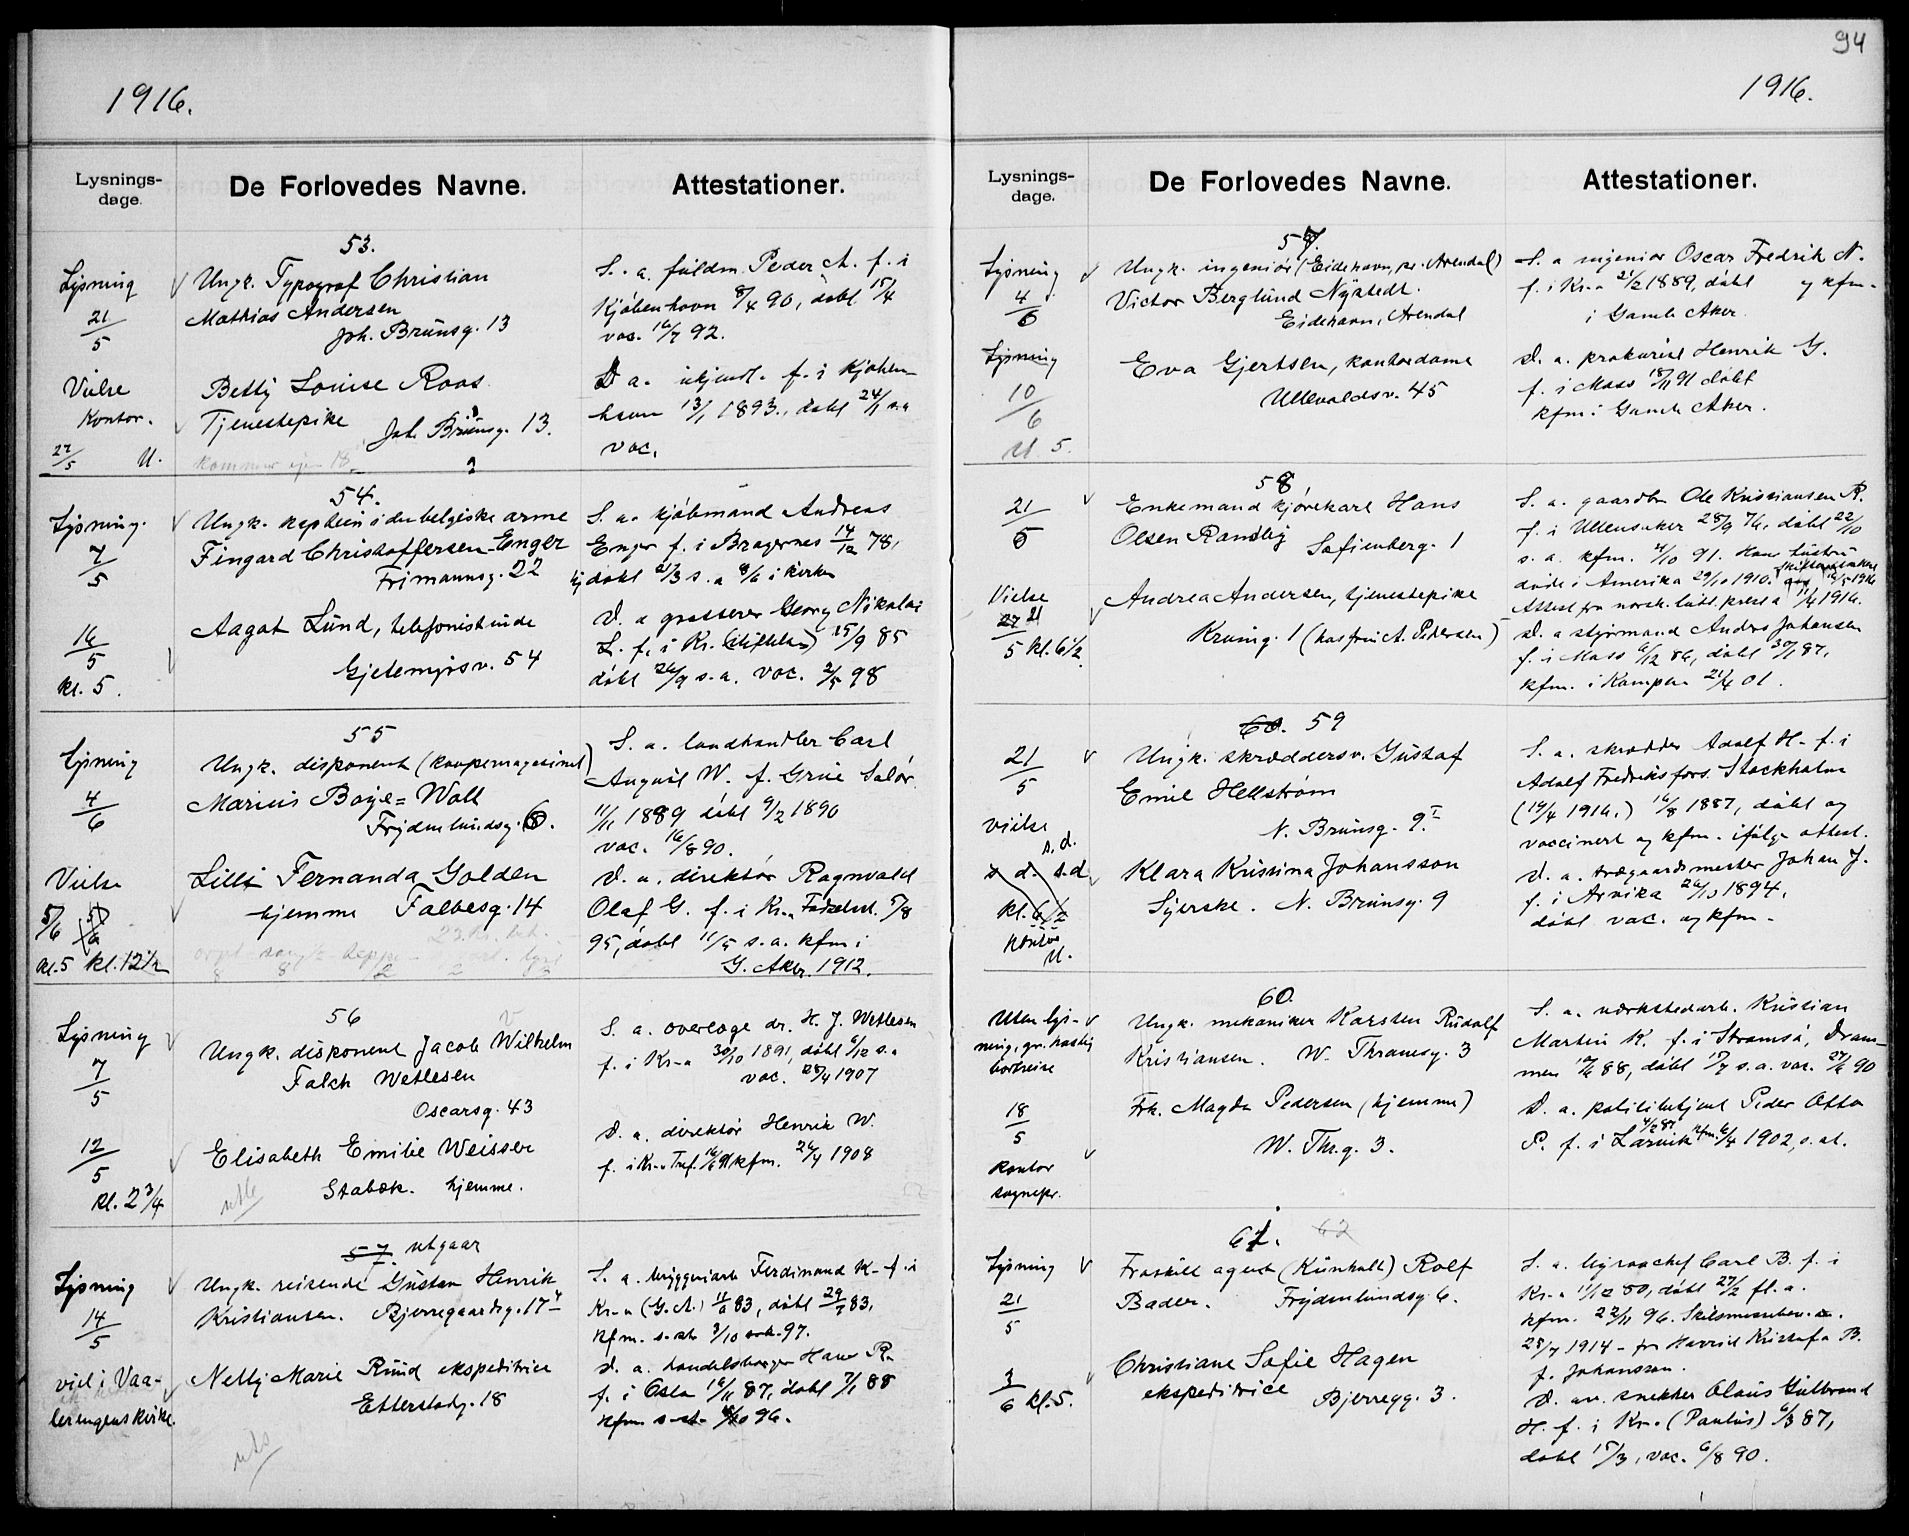 94
1916.
1916.
Lysnings-
dage.
De Forlovedes Navne.
Attestationer.
53.
Lysning
21/5
Vielse
Kontor.
27/5 U.
Ungk. Typograf Christian
Mathias Andersen
Joh. Brunsg. 13
Betty Louise Roos
Tjenestepike Joh. Brunsg. 13.
S. a. fuldm. Peder A. f. i
Kjøbenhavn 8/4 90, døbt 15/4
vac. 16/7 92.
D a. f. i Kjøben-
havn 13/1 1893, døbt 24/1 s.a
vac.
54.
Lysning.
7/5
16/5
kl. 5.
Ungk. kaptein i den belgiske arme
Fingard Christoffersen-Enger
Frimannsg. 22
Aagot Lund, telefonistinde
Gjetemyrsv. 54
S. a. kjøbmand Andreas
Enger f. i Bragernes 14/12 78,
døbt 21/3 s. a 8/6 i kirken
D. a grosserer Georg Nikolai
L. f. i Kr. 15/9 85
døbt 26/9 s.a. vac. 2/5 98
55
Lysning
4/6
Vielse
5/6
kl. 5 kl. 12 1/2
Ungk. disponent (kaapemagasinet)
Marius Boye=Woll
Frydenlundsg. 6.
Lilli Fernanda Golden
hjemme Falbesg. 14
S. a. landhandler Carl
August W. f. Grue Solør
11/11 1889 døbt 9/2 1890
vac. 16/8 90.
D. a. direktør Ragnvald
Olaf G. f. i Kr.a 5/8
95, døbt 11/5 s.a. kfm i
G. Aker. 1912.
56
Lysning
7/5
12/5
kl. 2 3/4
Ungk. disponent Jacob Wilhelm
Falch Wetlesen
Oscarsg. 43
Elisabeth Emilie Weisser
Stabæk. hjemme.
S. a. overlæge dr. H. J. Wetlesen
f. i Kr-a 30/10 1891, døbt 6/12 s.a
vac. 28/4 1907
D. a. direktør Henrik W.
f. i Kr.a kfm. 26/4 1908
57. utgaar
Lysning
14/5
viel i Vaa-
lerengens kirke.
Ungk. reisende Gustav Henrik
Kristiansen. Bjerregaardsg. 17
Nelly Marie Ruud ekspeditrice
Etterstadg. 18
S. a. bryggeriarb Ferdinand K- f. i
Kr-a (G.A.) 11/6 83, døbt 29/7 83,
kfm. s. st. 3/10 97.
D. a. handelsborger Hans R.
f. i Oslo 16/11 87, døbt 7/1 88
kfm s-st- 4/10 96.
Lysnings-
dage.
De Forlovedes Navne.
Attestationer.
57.
Lysning
4/6
Lysning
10/6
U. 5.
Ungk. ingeniør (Eidehavn, pr. Arendal)
Victor Berglund Nystedt.
Eidehavn, Arendal
Eva Gjertsen, kontordame
Ullevoldsv. 45
S. a ingeniør Oscar Fredrik N.
f. i Kr.a 21/2 1889, døbt og kfm-
i Gamle Aker.
D. a. prokurist Henrik G.
f. i Moss 18/11 91 døbt
kfm i Gamle Aker.
58.
21/5
Vielse
27/5 kl. 6 1/2
Enkemand kjørekarl Hans
Olsen Randby Sofienberg. 1
Andrea Andersen, tjenestepike
Krumg. 1 (hos fru A. Pedersen)
S. a. gaardbr Ole Kristiansen R.
f. i Ullensaker 28/9 76, døbt 22/10
s. a. kfm. 4/10 91. Hans hustru
døde i Amerika 29/10 1910.
Attest fra norsk luth. prest a 11/4 1916.
D. a styrmand Anders Johansen
f. i Moss 6/12 86, døbt 30/1 87,
kfm. i Kampen 21/4 01.
60. 59
21/5
vielse
s. d.
s. d.
kl. 6 1/2
kontor
U.
Ungk. skræddersv. Gustaf
Emil Hellstrøm
N. Brunsg. 9 I
Klara Kristina Johansson
Syerske. N. Brunsg. 9
S. a. skrædder Adolf H- f. i
Adolf Fredriks fors. Stockholm
(19/4 1916.) 16/8 1887, døbt og
vaccinert og kfm. ifølge attest.
D. a. trægaardsmester Johan J.
f. i Arvika 26/10 1894,
døbt vac. og kfm-
60.
Uten lys-
ning, gr. hastig
bortreise
18/5
kontor
sognepr.
Ungk. mekaniker Karsten Rudolf
Kristiansen. W. Thranesg. 3
Frk. Magda Pedersen (hjemme)
W. Thr.g. 3.
S. a. verkstedarb. Kristian
Martin K. f. i Strømsø, Dram-
men 88, døbt 17/7 s.a. vac. 90
D. a. politibetjent Peder Otto
P. f. i Larvik kfm. 6/4 1902, s. st.
61. 62
Lysning
21/5
3/6 kl. 5.
Fraskilt agent (Kunhalt) Rolf
Bader. Frydenlundsg 6.
Christiane Sofie Hagen
ekspeditrice Bjerregg. 3.
S. a. Carl B. f. i
Kr.a 11/12 80, døbt 27/2 fl. a.
kfm. 22/11 96. Skilsmissebev.
28/7 1914 - fra Harriet Kristofa B.
f. Johansson.
D. av. snekker Olaus Gulbrand
H. f. i Kr.a (Paulus) 6/3 87,
døbt 15/3, vac. 6/8 90.